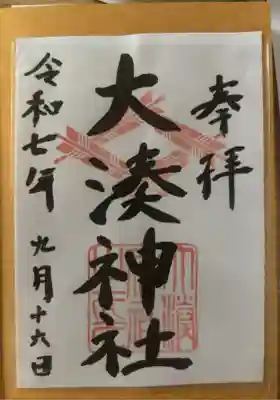 奉拝
大湊神社
令和七年 九月十六日